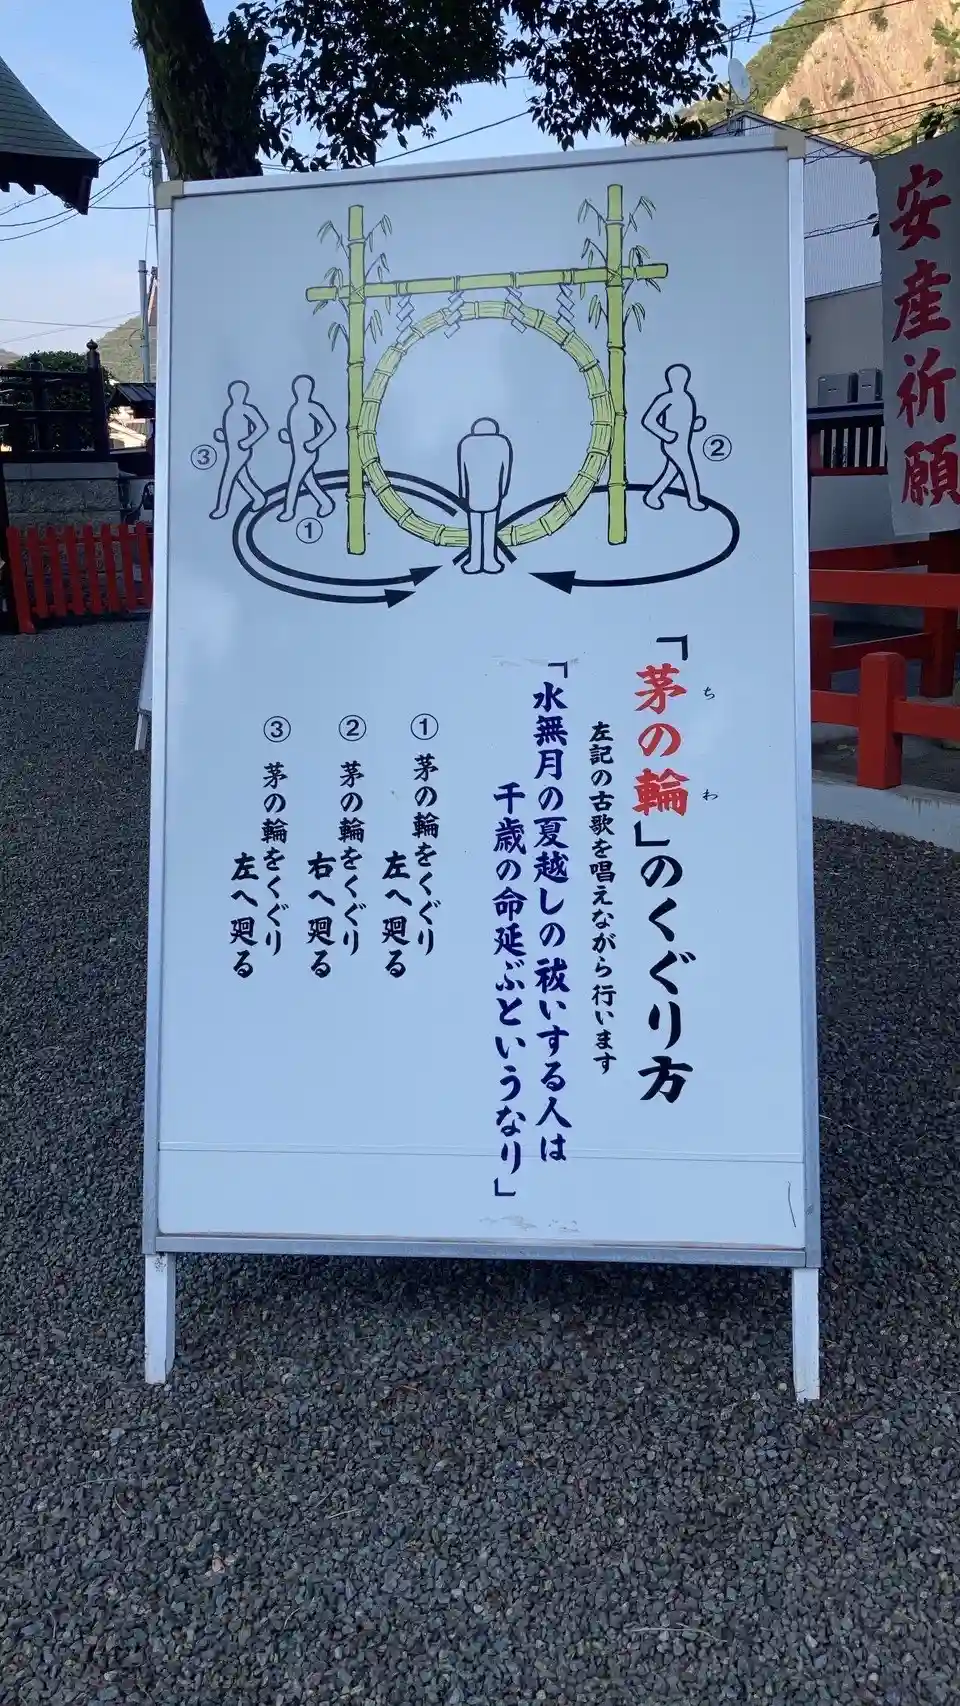 「茅の輪」のくぐり方
ち
わ
左記の古歌を唱えながら行います
「水無月の夏越しの祓いする人は
千歳の命延ぶというなり」
① 茅の輪をくぐり
左へ廻る
② 茅の輪をくぐり
右へ廻る
③ 茅の輪をくぐり
左へ廻る
③
①
②
安産祈願